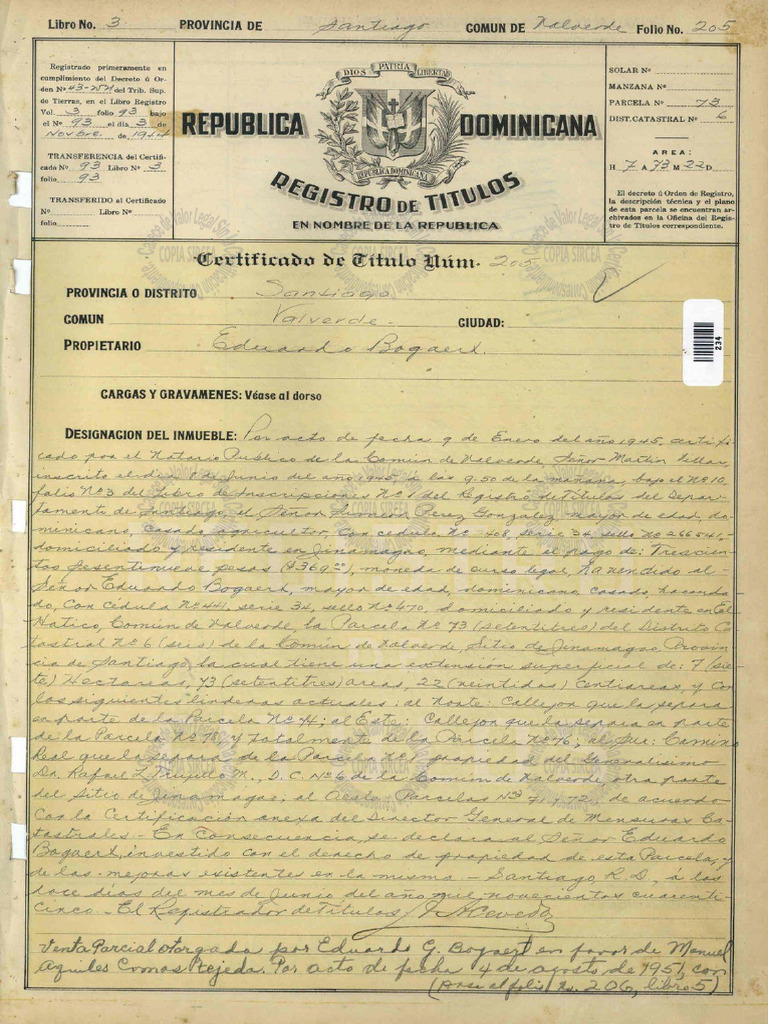 Libro No. 3 PROVINCIA DE Santiago COMUN DE Valverde Folio No. 205
Registrado primeramente en
cumplimiento del Decreto ú Or-
den Nº 43-2571 del Trib. Sup.
de Tierras, en el Libro Registro
Vol. 3 folio 93 bajo
el Nº 93 el día 3 de
Novbre. de 1944
TRANSFERENCIA del Certifi-
cado Nº 93 Libro Nº 3
folio 93
TRANSFERIDO al Certificado
Nº Libro Nº
folio
DIOS PATRIA LIBERTAD
REPUBLICA DOMINICANA
REPUBLICA DOMINICANA
REGISTRO DE TITULOS
EN NOMBRE DE LA REPUBLICA
SOLAR Nº
MANZANA Nº
PARCELA Nº 73
DIST. CATASTRAL Nº 6
AREA:
H 7 A 73 M 22 D
El decreto ú Orden de Registro,
la descripción técnica y el plano
de esta parcela se encuentran ar-
chivados en la Oficina del Regis-
tro de Títulos correspondiente.
COPIA SIRCEA
Certificado de Título Núm. 205
PROVINCIA O DISTRITO Santiago
COMUN Valverde. CIUDAD:
PROPIETARIO Eduardo Bogaert.
234
CARGAS Y GRAVAMENES: Véase al dorso
DESIGNACION DEL INMUEBLE: Por acto de fecha 9 de Enero del año 1945, certifi-
cado por el Notario Público de la Común de Valverde, Señor Martín
inscrito el día de Junio del año 1945, á las 9.50 de la mañana, bajo el Nº 10,
folio Nº 3 del Libro de Inscripciones Nº 1 del Registro de Títulos del Depar-
tamento de Santiago, el Señor Perez Gonzalez, mayor de edad, do-
minicano, casado, agricultor, con cédula Nº 408, serie 34, sello Nº 266541,
domiciliado y residente en Jinamagao, mediante el pago de: Trescien-
tos sesentinueve pesos ($369.00), moneda de curso legal, ha vendido al
Señor Eduardo Bogaert, mayor de edad, dominicano, casado, hacenda-
do, con cédula Nº 441, serie 34, sello Nº 470, domiciliado y residente en El
Hatico, Común de Valverde, la Parcela Nº 73 (setentitres) del Distrito Ca-
tastral Nº 6 (seis) de la Común de Valverde, Sitio de Jinamagao, Provin-
cia de Santiago, la cual tiene una extensión superficial de: 7 (sie-
te) Hectareas, 73 (setentitres) areas, 22 (veintidos) Centiareas, y con
los siguientes linderos actuales: al Norte: Callejon que la separa
en parte de la Parcela Nº 74; al Este: Callejon que la separa en parte
de la Parcela Nº 78 y totalmente de la Parcela Nº 76; al Sur: Camino
Real que la separa de la Parcela Nº propiedad del Generalísimo
Dr. Rafael L. Trujillo M., D. C. Nº 6 de la Común de Valverde otra parte
del Sitio de Jinamagao, al Oeste Parcelas Nos. 71 y 72, de acuerdo
con la Certificación anexa del Director General de Mensuras Ca-
tastrales.- En Consecuencia, se declara al Señor Eduardo
Bogaert, investido con el derecho de propiedad de esta Parcela, y
de las mejoras existentes en la misma.- Santiago, R.D., á los
doce días del mes de Junio del año mil novecientos cuarenti-
cinco.- El Registrador de Títulos
Venta Parcial otorgada por Eduardo G. Bogaert en favor de Manuel
Aquiles Comas Rejeda. Por acto de fecha 4 de agosto de 1951, con
(Pasa al folio No. 206, libro 5)